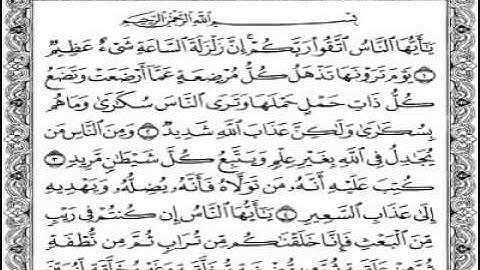 بِسْمِ ٱللَّهِ ٱلرَّحْمَٰنِ ٱلرَّحِيمِ
يَٰٓأَيُّهَا ٱلنَّاسُ ٱتَّقُوا۟ رَبَّكُمْ إِنَّ زَلْزَلَةَ ٱلسَّاعَةِ شَىْءٌ عَظِيمٌ
١ يَوْمَ تَرَوْنَهَا تَذْهَلُ كُلُّ مُرْضِعَةٍ عَمَّآ أَرْضَعَتْ وَتَضَعُ
كُلُّ ذَاتِ حَمْلٍ حَمْلَهَا وَتَرَى ٱلنَّاسَ سُكَٰرَىٰ وَمَا هُم
بِسُكَٰرَىٰ وَلَٰكِنَّ عَذَابَ ٱللَّهِ شَدِيدٌ ٢ وَمِنَ ٱلنَّاسِ مَن
يُجَٰدِلُ فِى ٱللَّهِ بِغَيْرِ عِلْمٍ وَيَتَّبِعُ كُلَّ شَيْطَٰنٍ مَّرِيدٍ ٣
كُتِبَ عَلَيْهِ أَنَّهُۥ مَن تَوَلَّاهُ فَأَنَّهُۥ يُضِلُّهُۥ وَيَهْدِيهِ
إِلَىٰ عَذَابِ ٱلسَّعِيرِ ٤ يَٰٓأَيُّهَا ٱلنَّاسُ إِن كُنتُمْ فِى رَيْبٍ
مِّنَ ٱلْبَعْثِ فَإِنَّا خَلَقْنَٰكُم مِّن تُرَابٍ ثُمَّ مِن نُّطْفَةٍ